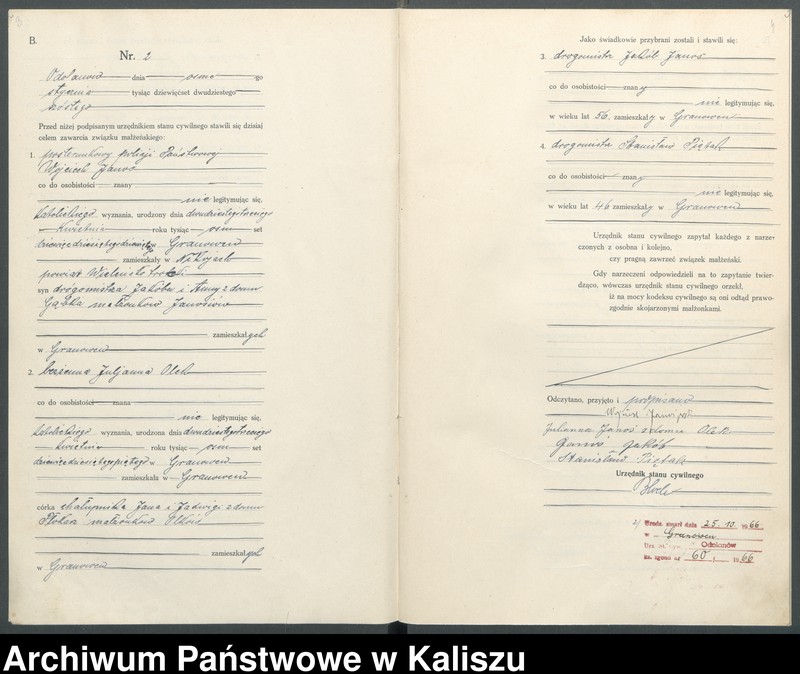 B.
Nr. 2
Odolanów dnia ósmego
stycznia tysiąc dziewięćset dwudziestego
szóstego
Przed niżej podpisanym urzędnikiem stanu cywilnego stawili się dzisiaj
celem zawarcia związku małżeńskiego:
1. posterunkowy policji Państwowej
Wojciech Janoś
co do osobistości znany
nie legitymując się,
katolickiego wyznania, urodzony dnia dwudziestego trzeciego
kwietnia roku tysiąc osm set
dziewięćdziesiątego w Granowcu
zamieszkały w
powiat
syn drogomistrza Jakóba i Anny z domu
małżonków Janosiów
zamieszkałych
w Granowcu
2. bezżenna Juljanna Olek
co do osobistości znana
nie legitymując się,
katolickiego wyznania, urodzona dnia dwudziestego trzeciego
kwietnia roku tysiąc osm set
dziewięćdziesiątego piątego w Granowcu
zamieszkała w Granowcu
córka chałupnika Jana i Jadwigi z domu
małżonków Olków
zamieszkałych
w Granowcu
Jako świadkowie przybrani zostali i stawili się:
3. drogomistrz Jakób Janoś
co do osobistości znany
nie legitymując się,
w wieku lat 56, zamieszkały w Granowcu
4. drogomistrz Stanisław Piętak
co do osobistości znany
nie legitymując się,
w wieku lat 46 zamieszkały w Granowcu
Urzędnik stanu cywilnego zapytał każdego z narze-
czonych z osobna i kolejno,
czy pragną zawrzeć związek małżeński.
Gdy narzeczeni odpowiedzieli na to zapytanie twier-
dząco, wówczas urzędnik stanu cywilnego orzekł,
iż na mocy kodeksu cywilnego są oni odtąd prawo-
zgodnie skojarzonymi małżonkami.
Odczytano, przyjęto i podpisano
Wojciech Janoś
Julianna Janoś z domu Olek
Janoś Jakób
Stanisław Piętak
Urzędnik stanu cywilnego
2) Urodz. zmarł dnia 25.10. 1966
w Granowcu
Odolanów
nr 60, 1966
Archiwum Państwowe w Kaliszu